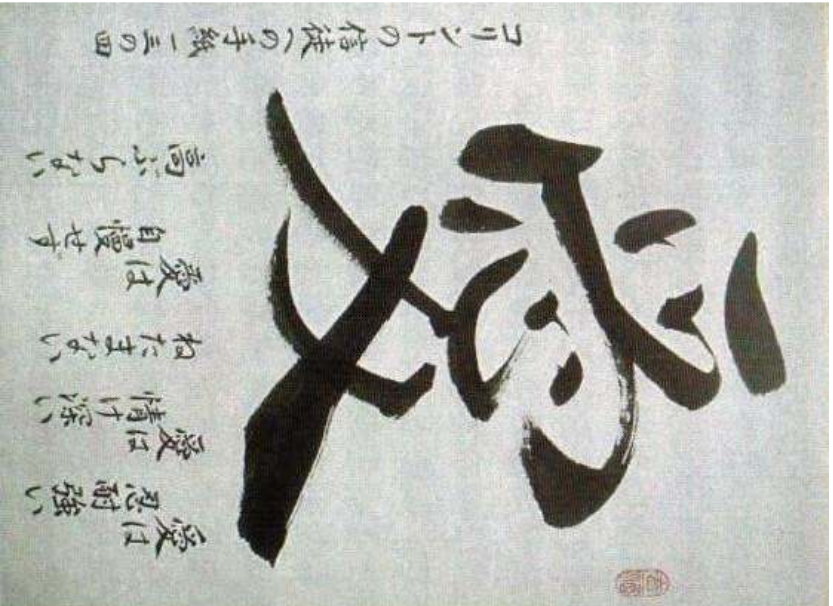 愛
愛は
忍耐強い
愛は
情け深い
ねたまない
愛は
自慢せず
高ぶらない
コリントの信徒への手紙一三の四